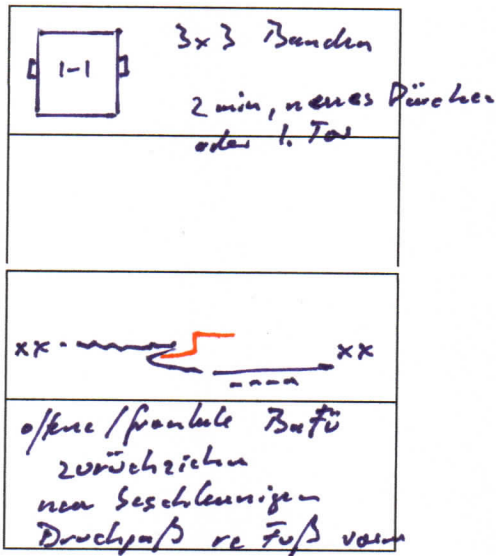 1-1
3x3 Banden
2 min, neues Pärchen
oder 1. Tor
xx
xx
offene/frontale BaFü
zurückziehen
neu beschleunigen
Druckpaß re Fuß vorn